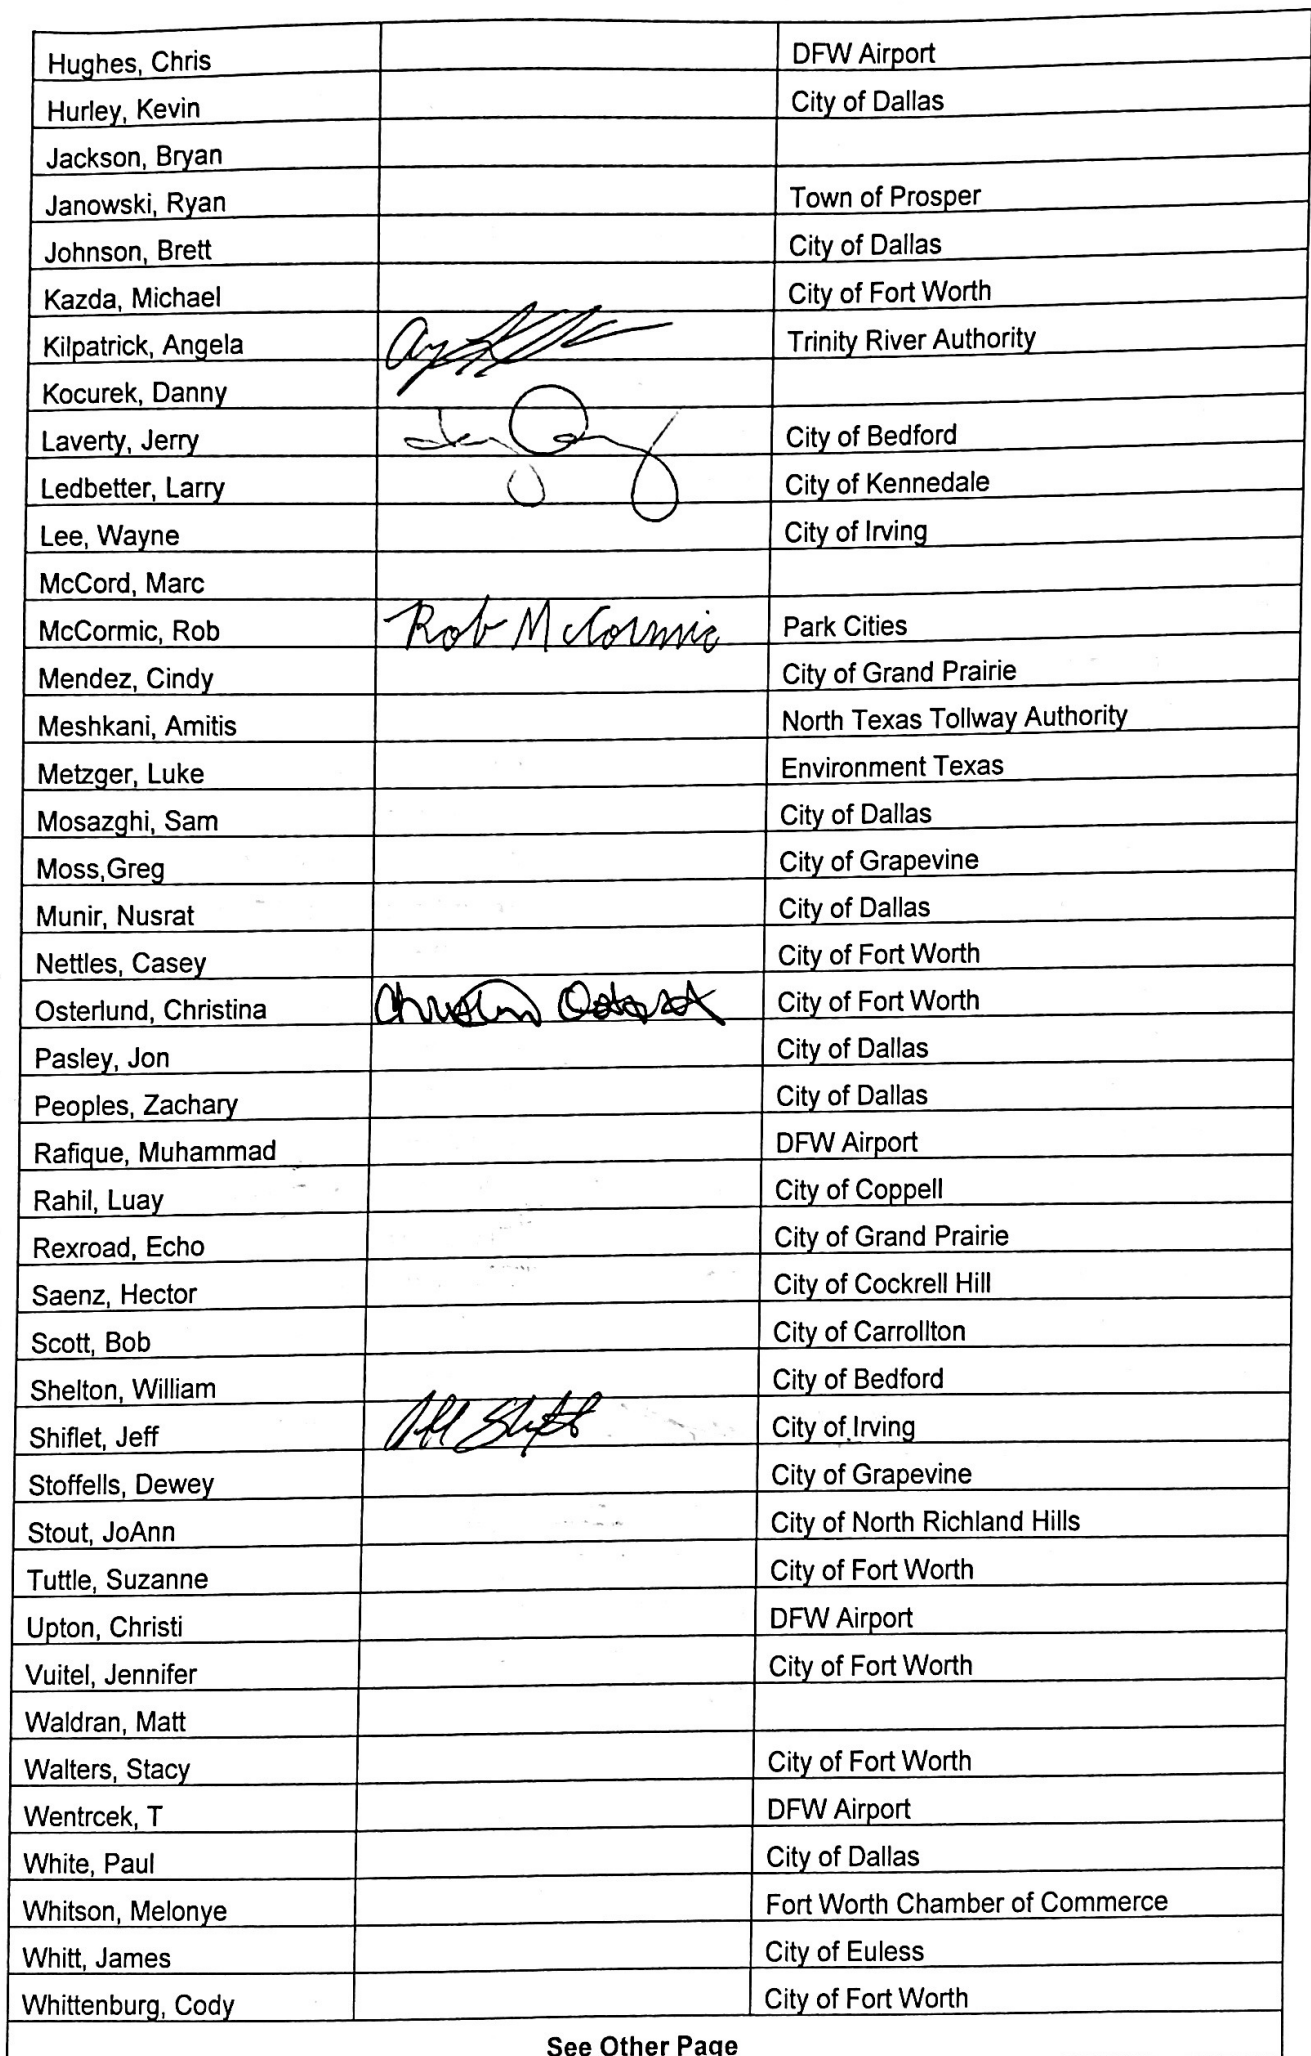 Hughes, Chris DFW Airport
Hurley, Kevin City of Dallas
Jackson, Bryan
Janowski, Ryan Town of Prosper
Johnson, Brett City of Dallas
Kazda, Michael City of Fort Worth
Kilpatrick, Angela Trinity River Authority
Kocurek, Danny
Laverty, Jerry City of Bedford
Ledbetter, Larry City of Kennedale
Lee, Wayne City of Irving
McCord, Marc
McCormic, Rob Rob McCormic Park Cities
Mendez, Cindy City of Grand Prairie
Meshkani, Amitis North Texas Tollway Authority
Metzger, Luke Environment Texas
Mosazghi, Sam City of Dallas
Moss,Greg City of Grapevine
Munir, Nusrat City of Dallas
Nettles, Casey City of Fort Worth
Osterlund, Christina City of Fort Worth
Pasley, Jon City of Dallas
Peoples, Zachary City of Dallas
Rafique, Muhammad DFW Airport
Rahil, Luay City of Coppell
Rexroad, Echo City of Grand Prairie
Saenz, Hector City of Cockrell Hill
Scott, Bob City of Carrollton
Shelton, William City of Bedford
Shiflet, Jeff City of Irving
Stoffells, Dewey City of Grapevine
Stout, JoAnn City of North Richland Hills
Tuttle, Suzanne City of Fort Worth
Upton, Christi DFW Airport
Vuitel, Jennifer City of Fort Worth
Waldran, Matt
Walters, Stacy City of Fort Worth
Wentrcek, T DFW Airport
White, Paul City of Dallas
Whitson, Melonye Fort Worth Chamber of Commerce
Whitt, James City of Euless
Whittenburg, Cody City of Fort Worth
See Other Page